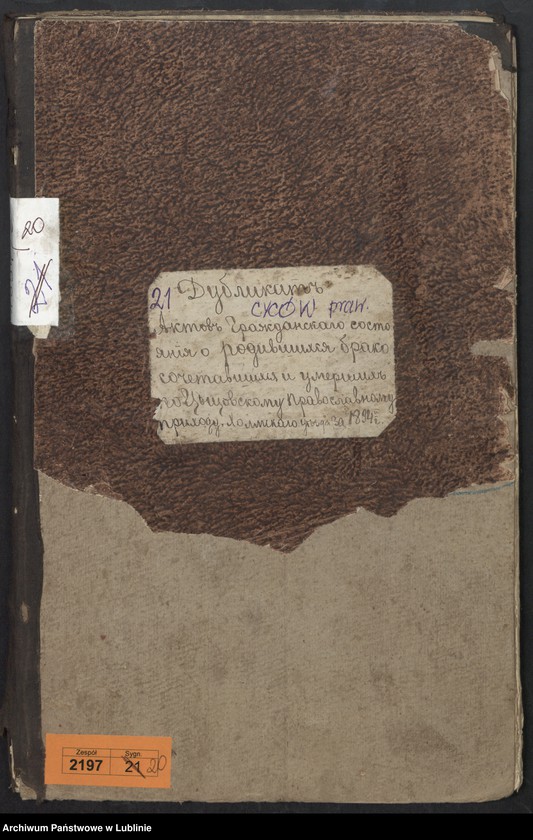 20
21
21 Дубликатъ
CYCÓW praw.
Актовъ Гражданскаго состо
янія о родившихся брако
сочетавшихся и умершихъ
по Цыцовскому Православному
приходу, Холмскаго уѣзда за 1894 г.
Zespół
2197
Sygn.
21 20
Archiwum Państwowe w Lublinie